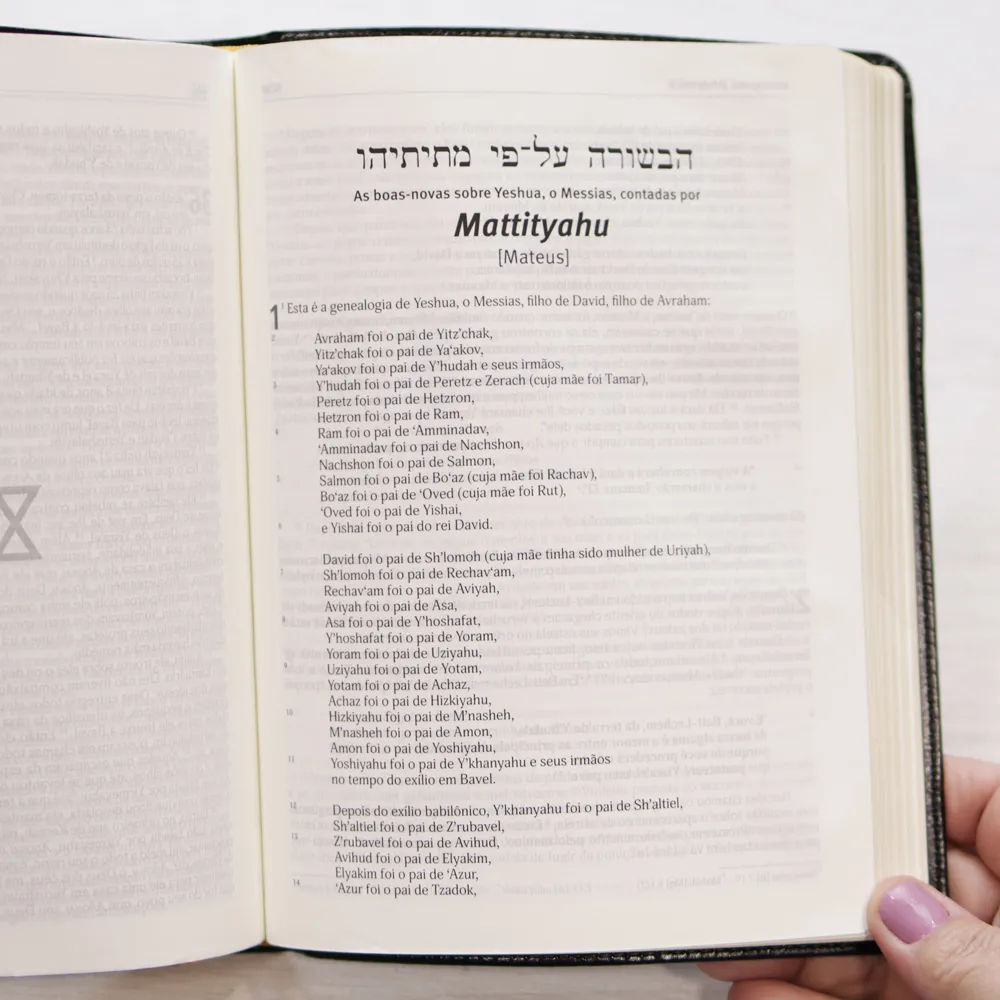 הבשורה על־פי מתיתיהו
As boas-novas sobre Yeshua, o Messias, contadas por
Mattityahu
[Mateus]
1 ¹ Esta é a genealogia de Yeshua, o Messias, filho de David, filho de Avraham:
2 Avraham foi o pai de Yitz’chak,
Yitz’chak foi o pai de Ya‘akov,
Ya‘akov foi o pai de Y’hudah e seus irmãos,
3 Y’hudah foi o pai de Peretz e Zerach (cuja mãe foi Tamar),
Peretz foi o pai de Hetzron,
Hetzron foi o pai de Ram,
4 Ram foi o pai de ‘Amminadav,
‘Amminadav foi o pai de Nachshon,
Nachshon foi o pai de Salmon,
5 Salmon foi o pai de Bo‘az (cuja mãe foi Rachav),
Bo‘az foi o pai de ‘Oved (cuja mãe foi Rut),
‘Oved foi o pai de Yishai,
6 e Yishai foi o pai do rei David.
David foi o pai de Sh’lomoh (cuja mãe tinha sido mulher de Uriyah),
7 Sh’lomoh foi o pai de Rechav‘am,
Rechav‘am foi o pai de Aviyah,
Aviyah foi o pai de Asa,
8 Asa foi o pai de Y’hoshafat,
Y’hoshafat foi o pai de Yoram,
Yoram foi o pai de Uziyahu,
9 Uziyahu foi o pai de Yotam,
Yotam foi o pai de Achaz,
Achaz foi o pai de Hizkiyahu,
10 Hizkiyahu foi o pai de M’nasheh,
M’nasheh foi o pai de Amon,
Amon foi o pai de Yoshiyahu,
11 Yoshiyahu foi o pai de Y’khanyahu e seus irmãos
no tempo do exílio em Bavel.
12 Depois do exílio babilônico, Y’khanyahu foi o pai de Sh’altiel,
Sh’altiel foi o pai de Z’rubavel,
13 Z’rubavel foi o pai de Avihud,
Avihud foi o pai de Elyakim,
Elyakim foi o pai de ‘Azur,
14 ‘Azur foi o pai de Tzadok,